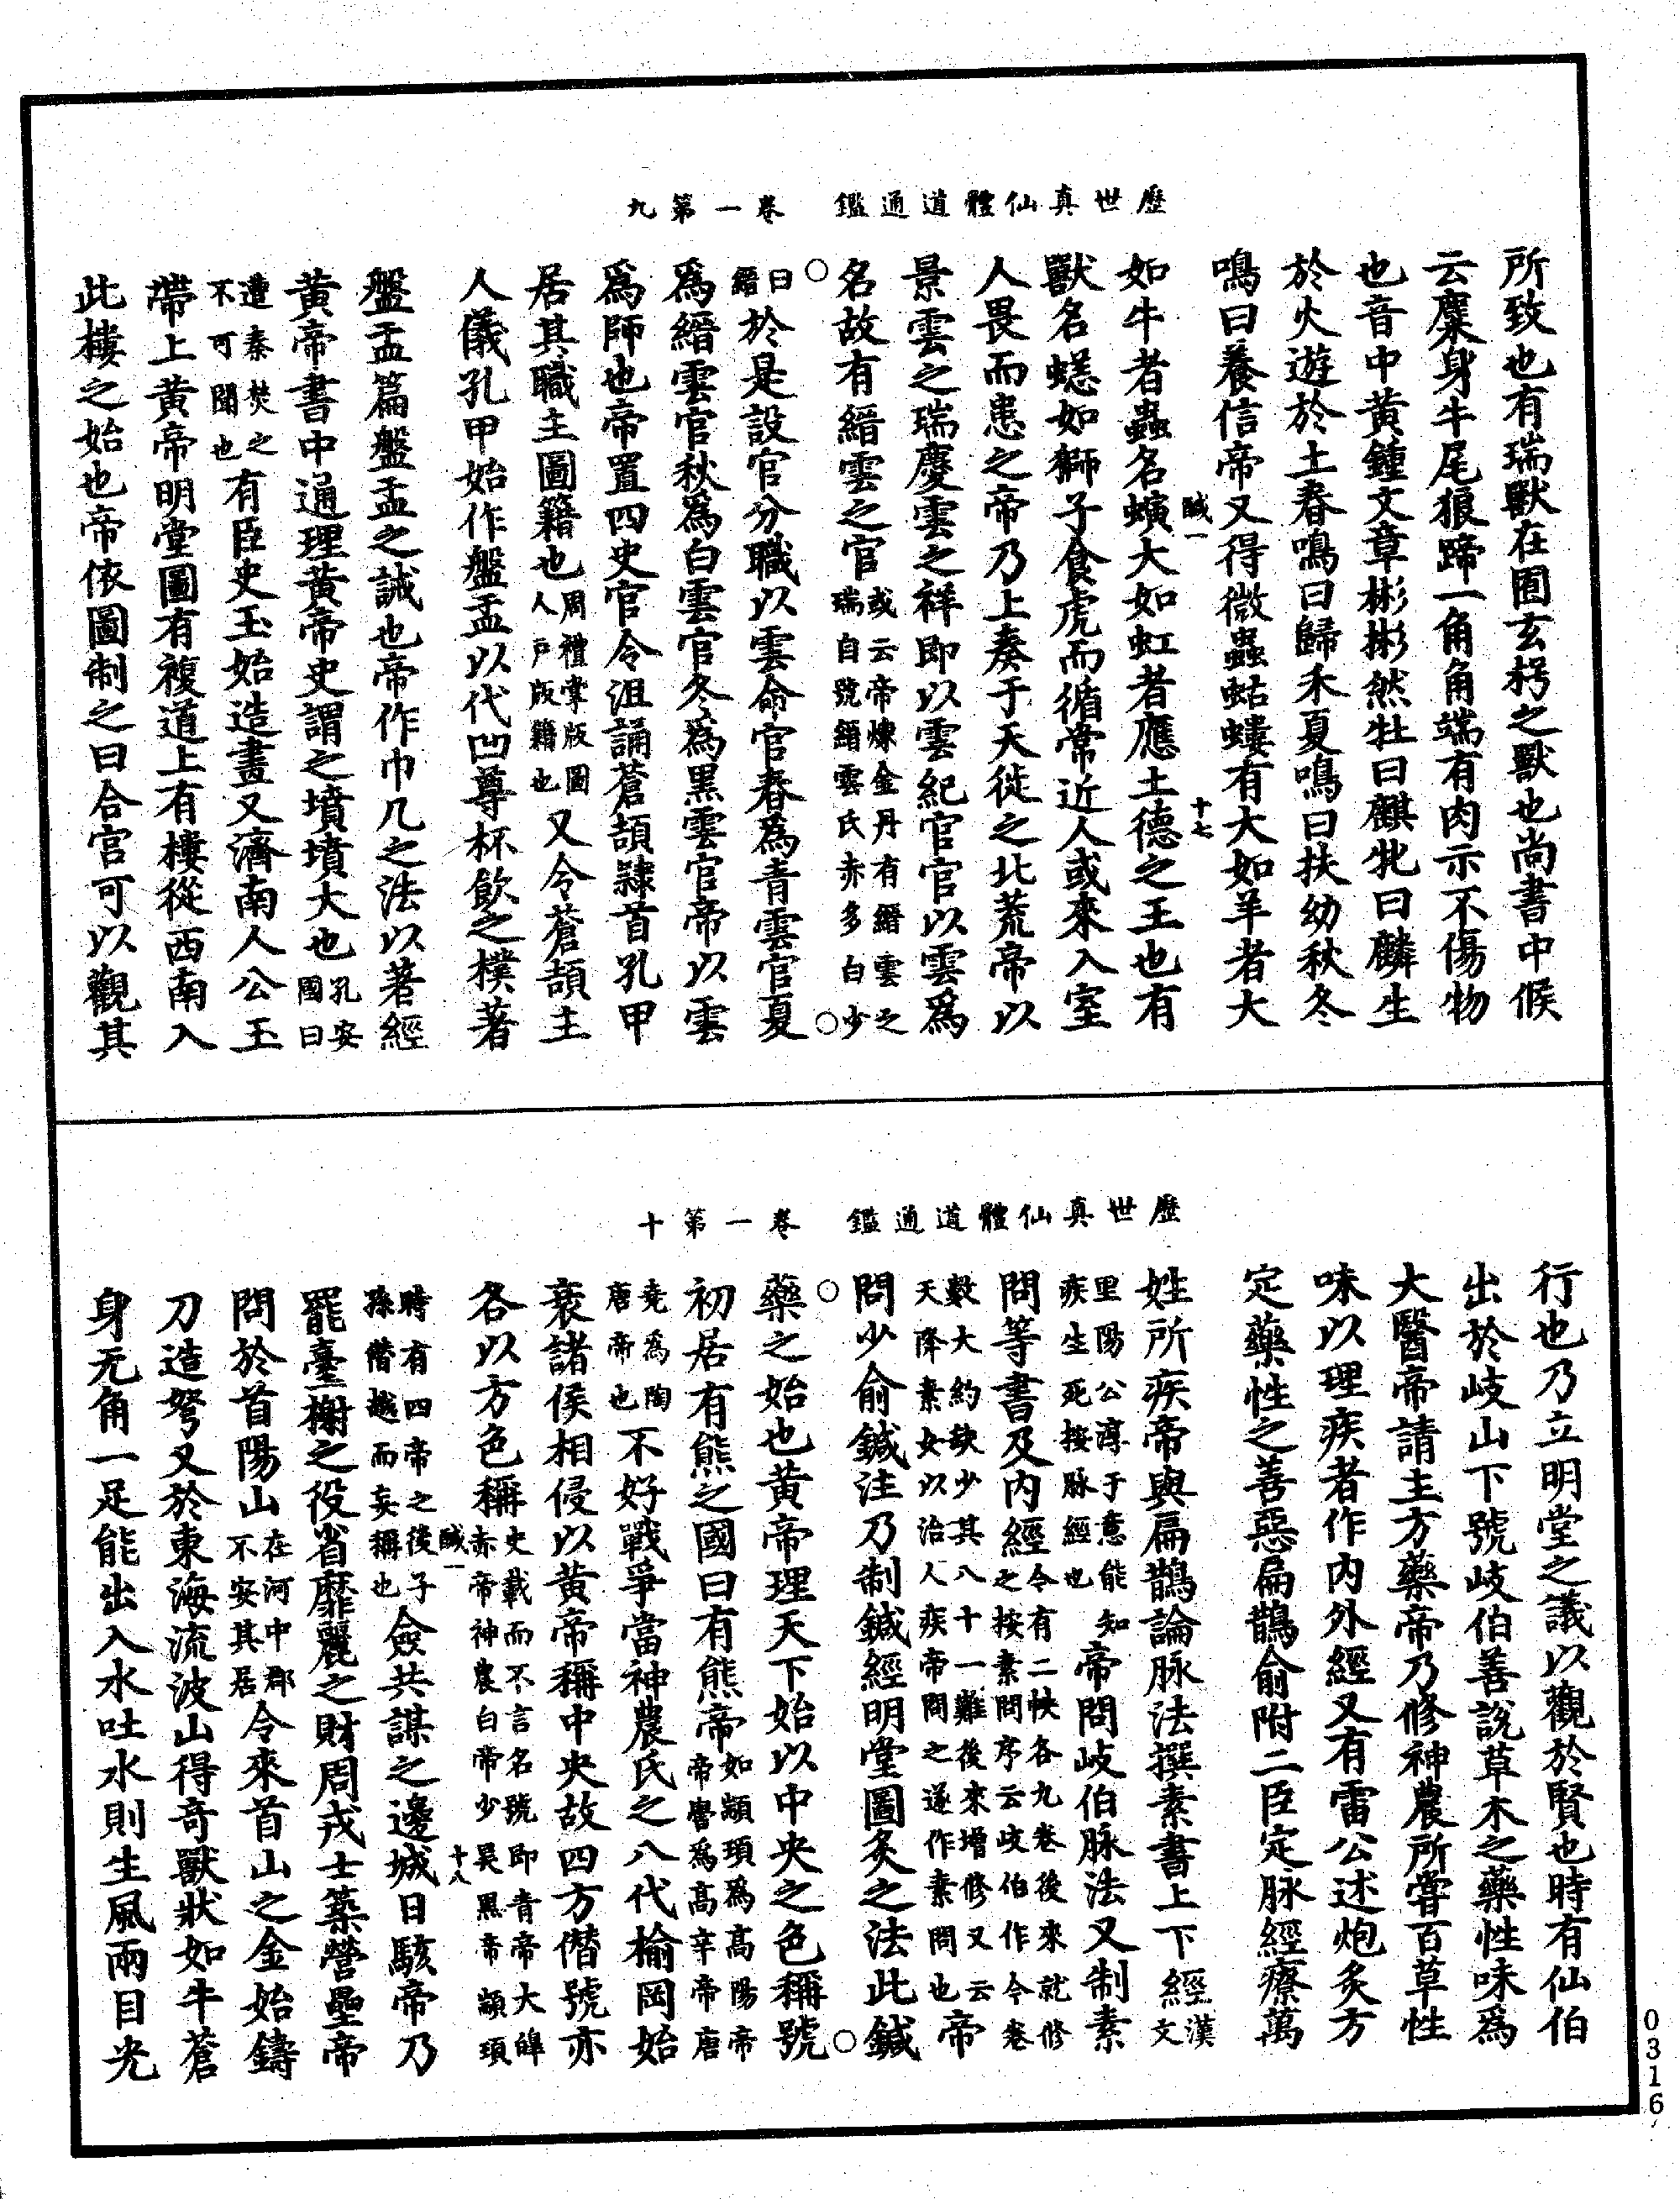 歷世真仙體道通鑑　卷一第九
所致也有瑞獸在囿玄枵之獸也尚書中候
云麇身牛尾狼蹄一角角端有肉示不傷物
也音中黃鍾文章彬彬然牡曰麒牝曰麟生
於火遊於土春鳴曰歸禾夏鳴曰扶幼秋冬
鳴曰養信帝又得微蟲蛄螻有大如羊者大
賊一　十七
如牛者蟲名螾大如虹者應土德之王也有
獸名䗓如獅子食虎而循常近人或來入室
人畏而患之帝乃上奏于天徙之北荒帝以
景雲之瑞慶雲之祥即以雲紀官官以雲為
名故有縉雲之官或云帝煉金丹有縉雲之瑞自號縉雲氏赤多白少
曰縉於是設官分職以雲命官春為青雲官夏
為縉雲官秋為白雲官冬為黑雲官帝以雲
為師也帝置四史官令沮誦蒼頡隸首孔甲
居其職主圖籍也周禮掌版圖人戶版籍也又令蒼頡主
人儀孔甲始作盤盂以代凹尊杯飲之樸著
盤盂篇盤盂之誡也帝作巾几之法以著經
黃帝書中通理黃帝史謂之墳墳大也孔安國曰
遭秦焚之不可聞也有臣史玉始造畫又濟南人公玉
帶上黃帝明堂圖有複道上有樓從西南入
此樓之始也帝依圖制之曰合宮可以觀其
歷世真仙體道通鑑　卷一第十
行也乃立明堂之議以觀於賢也時有仙伯
出於岐山下號岐伯善說草木之藥性味為
大醫帝請主方藥帝乃修神農所嘗百草性
味以理疾者作內外經又有雷公述炮炙方
定藥性之善惡扁鵲俞附二臣定脉經療萬
姓所疾帝與扁鵲論脉法撰素書上下經漢文
里陽公淳于意能知疾生死按脉經也帝問岐伯脉法又制素
問等書及內經今有二帙各九卷後來就修之按素問序云岐伯作今卷
數大約缺少其八十一難後來增修又云天降素女以治人疾帝問之遂作素問也帝
問少俞鍼注乃制鍼經明堂圖炙之法此鍼
藥之始也黃帝理天下始以中央之色稱號
初居有熊之國曰有熊帝如顓頊為高陽帝帝嚳為高辛帝唐
堯為陶唐帝也不好戰爭當神農氏之八代榆岡始
衰諸侯相侵以黃帝稱中央故四方僭號亦
各以方色稱史載而不言名號即青帝大皞赤帝神農白帝少昊黑帝顓頊
賊一　十八
時有四帝之後子孫僭越而妄稱也僉共謀之邊城日駭帝乃
罷臺榭之役省靡麗之財周戎士築營壘帝
問於首陽山在河中郡不安其居令來首山之金始鑄
刀造弩又於東海流波山得奇獸狀如牛蒼
身无角一足能出入水吐水則生風雨目光
0316